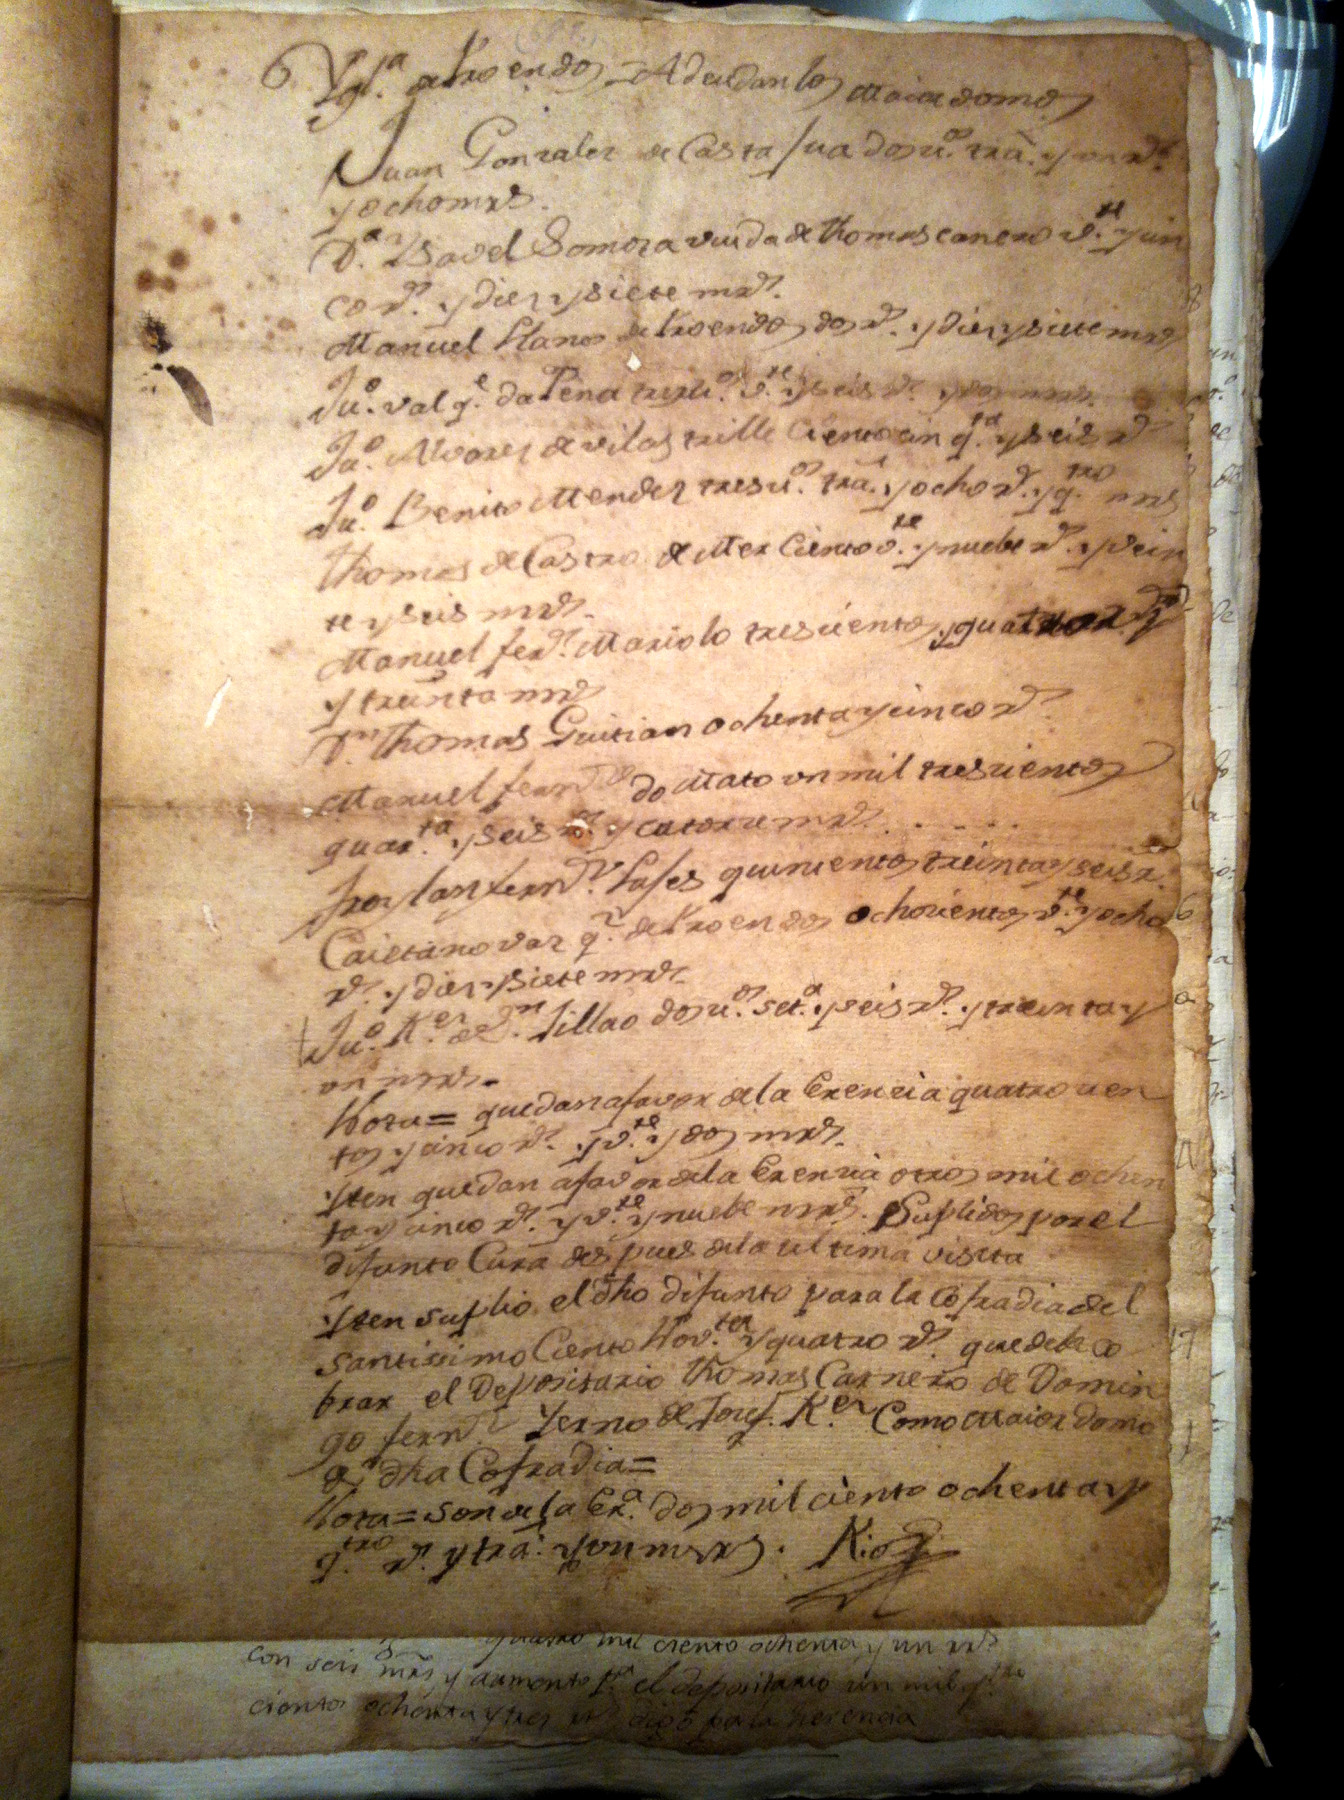 Ygl.ª de Kroendos = Adeudan los maiordomos
Juan Gonzalez de Casta sua dosz.os tra. y un rs.
y ocho mrs.
D.ª Ysavel Somoza viuda de Thomas canero v.te y cin
co rs. y diez y siete mrs.
Manuel Llanos de Kroendos dos rs. y diez y siete mrs
Ju.º val q.e da Pena v.te y seis rs. y dos mrs.
Ju.º Alvarez de vilastrille Ciento cin q.ta y seis rs
Ju.º Benito Mendez tresz.os tra. y ocho rs. y q.tro mrs
Thomas de Castro de Mer Ciento v.te y nuebe rs. y vein
te y seis mrs.
Manuel fern.z Mariolo trescientos y quatro rs
y treinta mrs
D.n Thomas Guitian ochenta y cinco rs.
Manuel fern.z do Mato un mil trescientos
quar.ta y seis rs. y catorze mrs.
froylan fern.z quinientos treinta y seis r.
Caietano vaz q.z de Kroendos ochocientos v.te y ocho
rs. y diez y siete mrs.
Ju.º R.ez de S.n Jillao dosz.os set.ª y seis rs. y treinta y
un mrs.
Nota = quedan a favor de la Erencia quatrocien
tos y cinco rs. y v.te y dos mrs.
Yten quedan a favor de la Erencia otros mil ochen
ta y cinco rs. y v.te y nuebe mrs. Suplidos por el
difunto Cura despues de la ultima visita
Yten suplio el dho difunto para la Cofradia del
santissimo Ciento Nov.ta y quatro rs. que debe co
brar el Depositario Thomas Carnero de Domin
go fern.z Yerno de Josef R.ez Como Maiordomo
de dha Cofradia =
Nota = son de la Er.ª dos mil ciento ochenta y
q.tro rs. y tra. y un mrs. Rios
quatro mil ciento ochenta y un rrs
con seis mrs y aumento el depositario un mil
ciento ochenta y tres rs digo pa la herencia